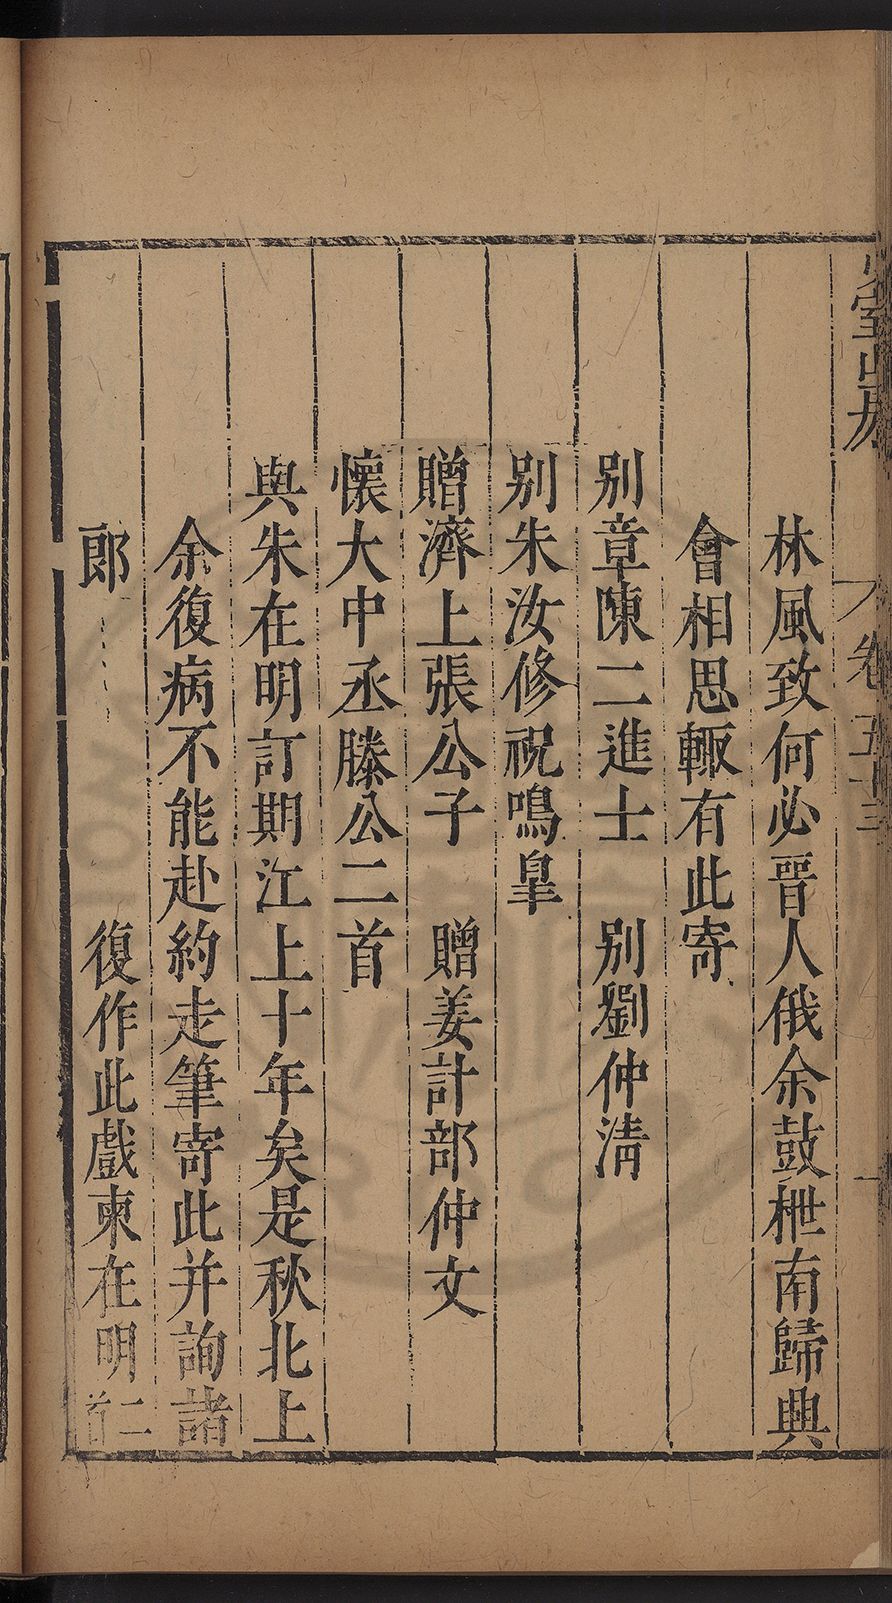 卷五十三
林風致何必晉人俄余鼓枻南歸興
會相思輙有此寄
别章陳二進士　别劉仲清
别朱汝修祝鳴皐
贈濟上張公子　贈姜計部仲文
懷大中丞滕公二首
與朱在明訂期江上十年矣是秋北上
余復病不能赴約走筆寄此并詢諸
郎　復作此戲柬在明二首